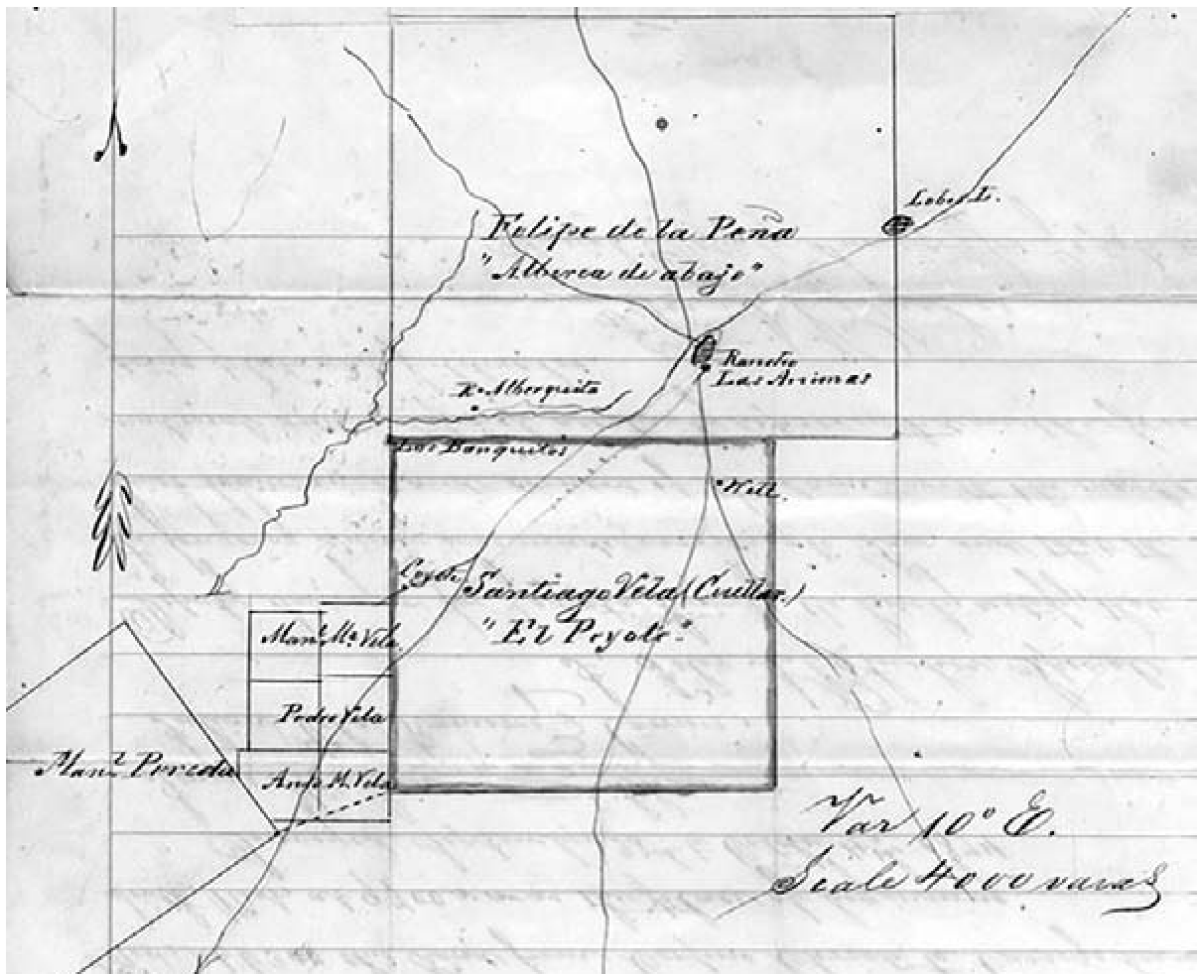 Lobos L.
Felipe de la Peña
"Alberca de abajo"
Rancho
Las Animas
Ro Alberquita
Los Banquitos
Well.
Coyote
Santiago Vela (Cuellar)
"El Peyote"
Manl. Ma. Vela
Pedro Vela
Manl.
Anto. M. Vela
Var 10° E.
Scale 4000 varas